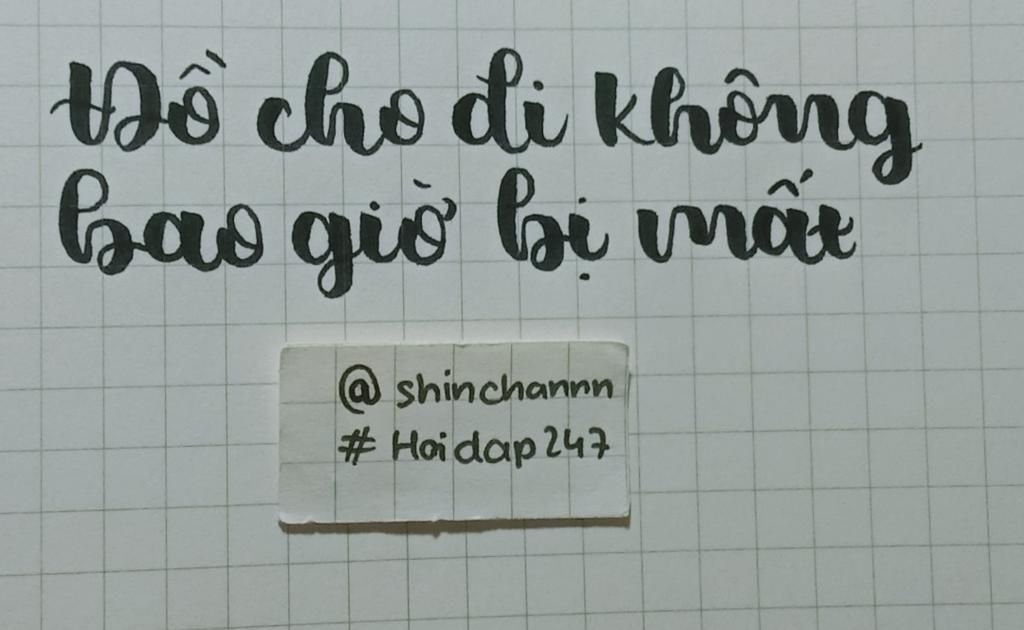 Đồ cho đi không
bao giờ bị mất
@ shinchannn
# Hoidap247